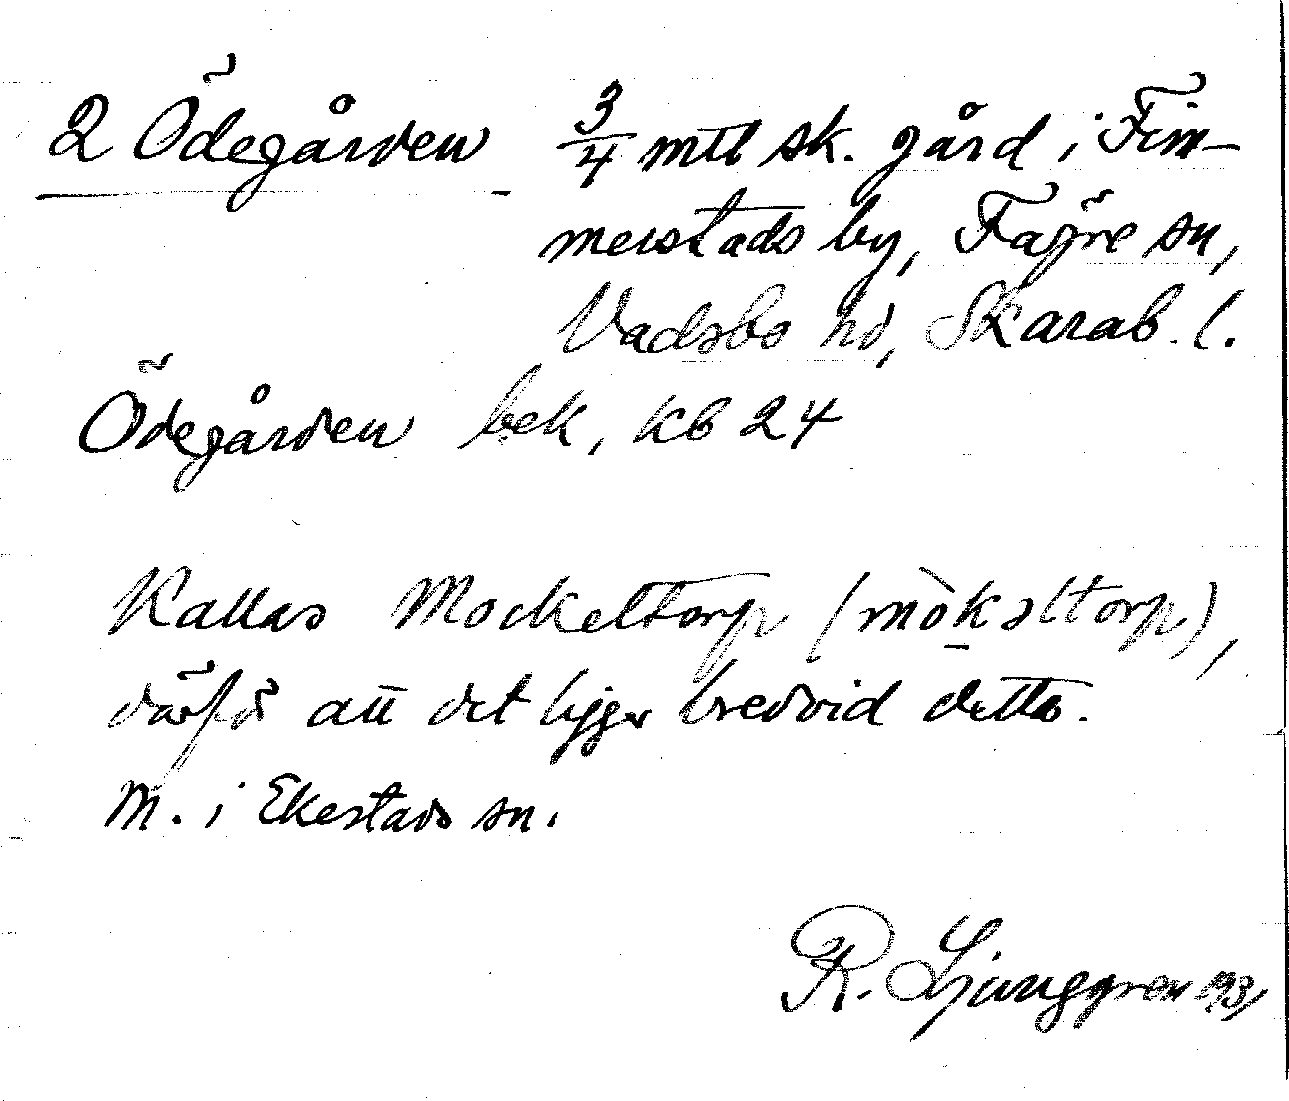 2 Ödegården 3/4 mtl sk. gård i Fim-
merstads by, Fägre sn,
Vadsbo hd, Skarab. l.
Ödegården bek, kb 24
Kallas Mockeltorp (mòkəltorp),
därför att det ligger bredvid detta.
M. i Ekestads sn.
R. Ljunggren 1931